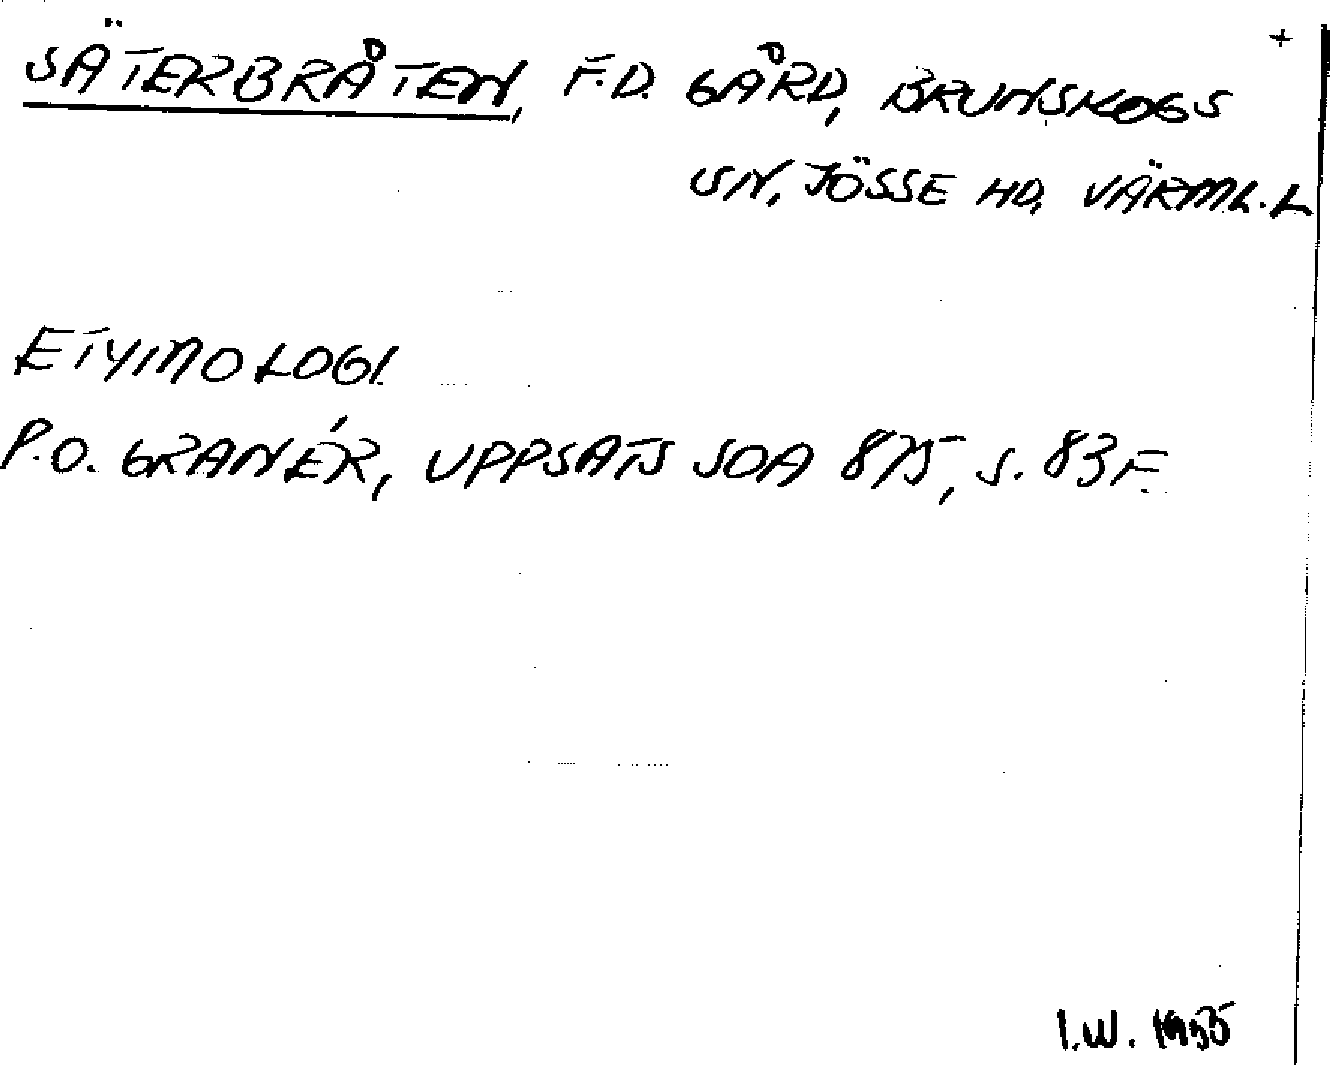 +
SÄTERBRÅTEN, F.D. GÅRD, BRUNSKOGS
SN, JÖSSE HD, VÄRML. L
ETYMOLOGI.
P.O. GRANÉR, UPPSATS SOA 875, S. 83 F.
I.W. 1955